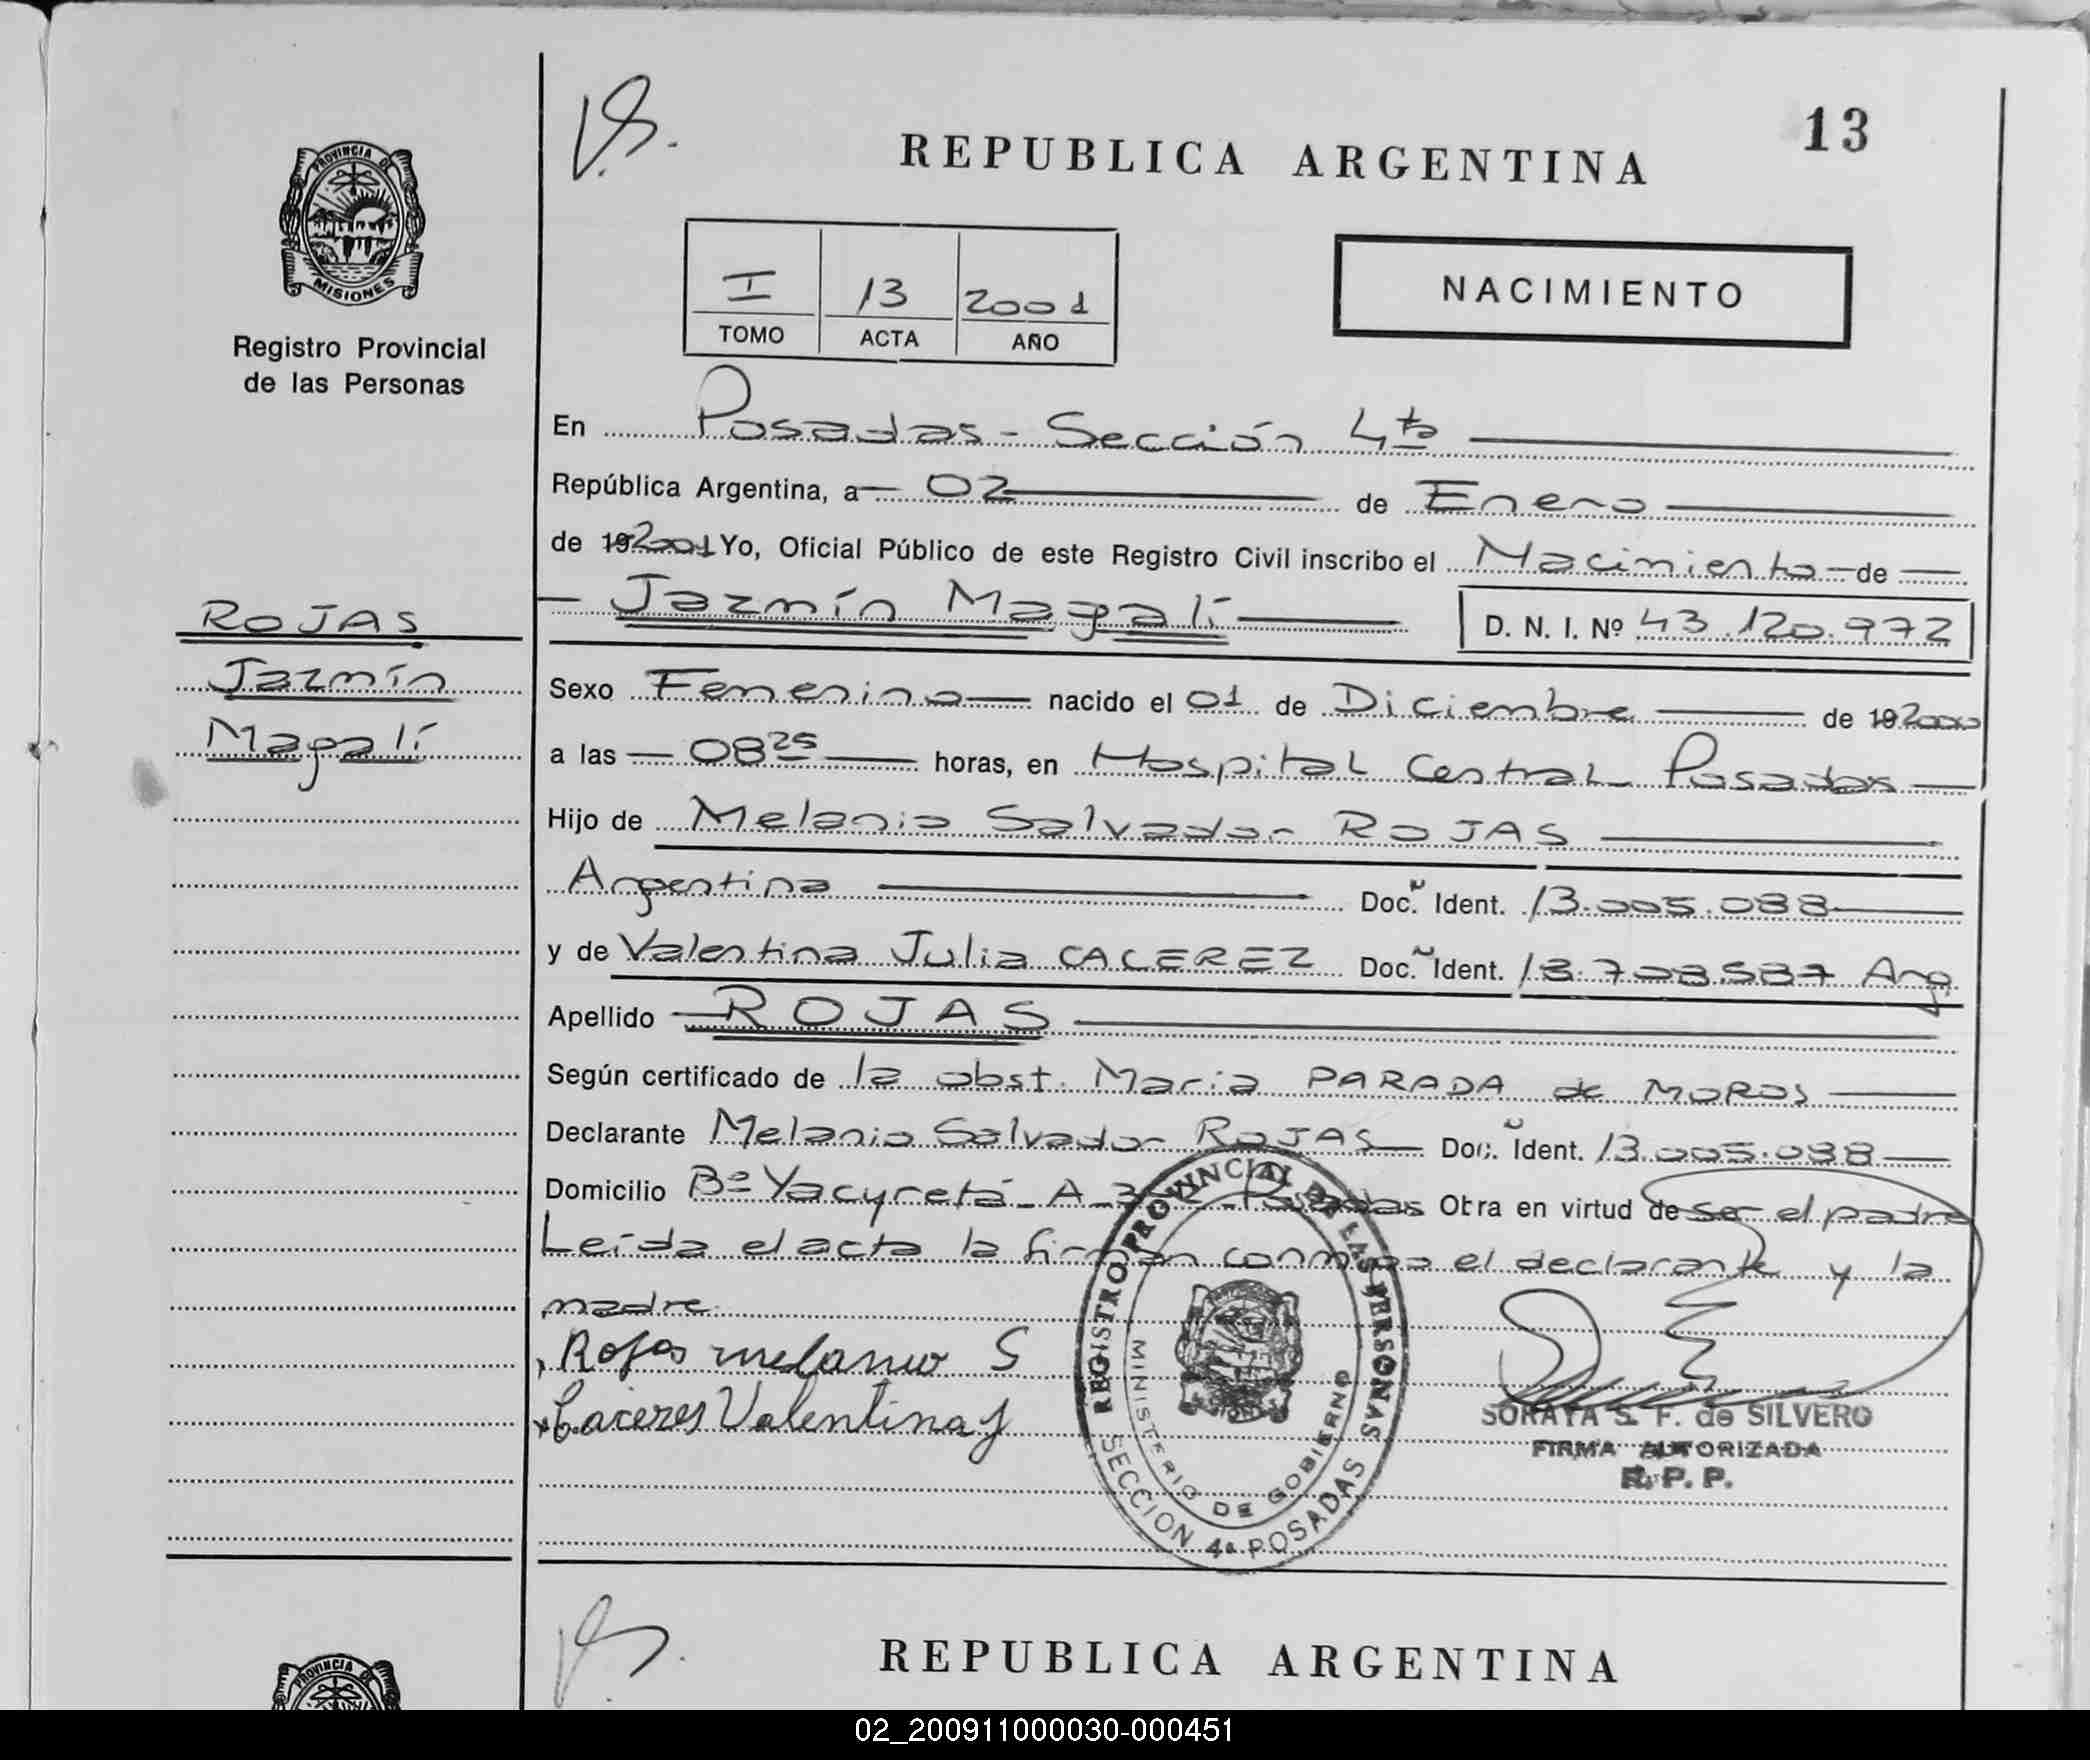 13
REPUBLICA ARGENTINA
PROVINCIA DE
MISIONES
Registro Provincial
de las Personas
I 13 2001
TOMO ACTA AÑO
NACIMIENTO
En Posadas - Sección 4ta
República Argentina, a 02 de Enero
de 192001 Yo, Oficial Público de este Registro Civil inscribo el Nacimiento de
Jazmín Magalí D. N. I. Nº 43.120.972
ROJAS
Jazmín
Magalí
Sexo Femenino nacido el 01 de Diciembre de 192000
a las 08 25 horas, en Hospital Central Posadas
Hijo de Melanio Salvador ROJAS
Argentina Doc. Ident. 13.005.088
y de Valentina Julia CACEREZ Doc. Ident. 13.728.587 Arg.
Apellido ROJAS
Según certificado de la obst. Maria PARADA de MOROS
Declarante Melanio Salvador ROJAS Doc. Ident. 13.005.088
Domicilio Bº Yacyretá - A - Posadas Otra en virtud de ser el padre
Leída el acta la firman conmigo el declarante y la
madre.
Rojas melanio S
Caceres Valentina J
REGISTRO PROVINCIAL DE LAS PERSONAS
MINISTERIO DE GOBIERNO
SECCION 4ª POSADAS
SORAYA S. F. de SILVERO
FIRMA AUTORIZADA
R. P. P.
REPUBLICA ARGENTINA
PROVINCIA DE
02_200911000030-000451